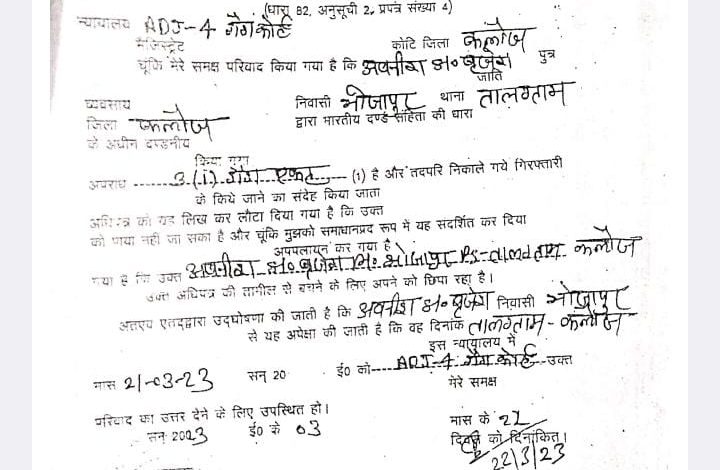 (धारा 82, अनुसूची 2, प्रपत्र संख्या 4)
न्यायालय ADJ-4 गैंग कोर्ट
मैजिस्ट्रेट कोटि जिला कन्नौज
चूंकि मेरे समक्ष परिवाद किया गया है कि अवनीश S/० बृजेश पुत्र
जाति
व्यवसाय निवासी भोजापुर थाना तालग्राम
जिला कन्नौज द्वारा भारतीय दण्ड संहिता की धारा
के अधीन दण्डनीय
किया गया
अपराध 3(1) गैंग एक्ट (1) है और तदपरि निकाले गये गिरफ्तारी
के किये जाने का संदेह किया जाता
अधिपत्र को यह लिख कर लौटा दिया गया है कि उक्त
को पाया नहीं जा सका है और चूंकि मुझको समाधानप्रद रूप में यह संदर्शित कर दिया
अपपलायन कर गया है
गया है कि उक्त अवनीश S/० बृजेश नि० भोजापुर Ps-तालग्राम कन्नौज
उक्त अधिपत्र की तामील से बचने के लिए अपने को छिपा रहा है।
अतएव एतद्द्वारा उद्घोषणा की जाती है कि अवनीश S/० बृजेश निवासी भोजापुर
से यह अपेक्षा की जाती है कि वह दिनांक तालग्राम - कन्नौज
इस न्यायालय में
मास 21-03-23 सन् 20 ई० को ADJ-4 गैंग कोर्ट उक्त
मेरे समक्ष
परिवाद का उत्तर देने के लिए उपस्थित हो।
मास के 22
सन् 2023 ई० के 03 दिवस को दिनांकित।
22/3/23